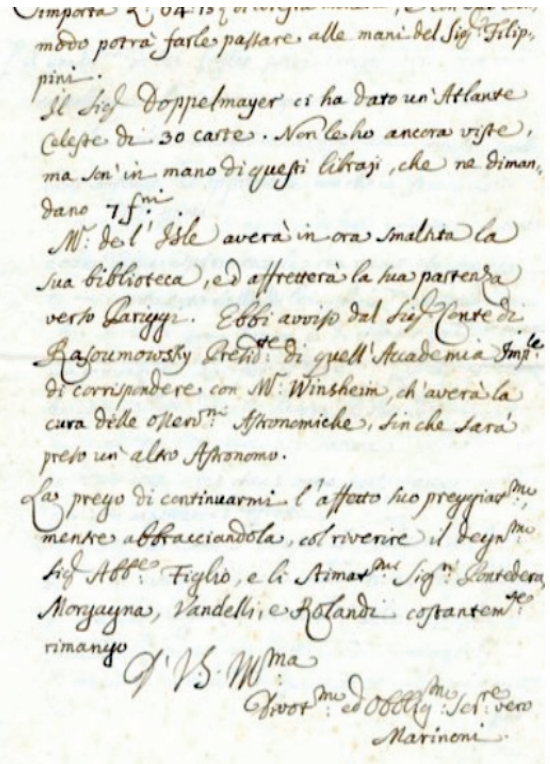 importa
modo potrà farle passare alle mani del Sigʳ Filip-
pini.
Il Sigʳ Doppelmayer ci ha dato un' Atlante
Celeste di 30 carte. Non le ho ancora viste,
ma son' in mano di questi libraji, che ne diman-
dano 7 fⁿⁱ.
Mʳ. de l'Isle averà in ora smaltita la
sua biblioteca, ed affretterà la sua partenza
verso Pariggi. Ebbi avviso dal Sigʳ Conte di
Rasoumowsky Presidᵗᵉ di quell'Accademia Impˡᵉ
di corrispondere con Mʳ. Winsheim, ch'averà la
cura delle osservⁿⁱ Astronomiche, sin che sarà
preso un' altro Astronomo.
La prego di continuarmi l'affetto suo preggiatᵐᵒ,
mentre abbracciandola, col riverire il degnᵐᵒ
Sigʳ Abbᵉ. Figlio, e li Stimatᵐⁱ Sigʳⁱ Pontedera,
Morgagna, Vandelli, e Rolandi costantemᵗᵉ
rimango
D' VS. Illᵐᵃ
Divotᵐᵒ ed Obbligᵐᵒ Serʳᵉ vero
Marinoni.